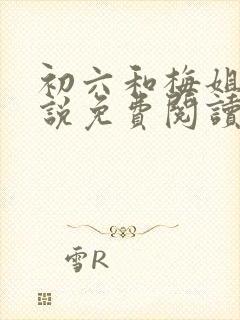 初六和梅姐
説免費閱讀
雪R